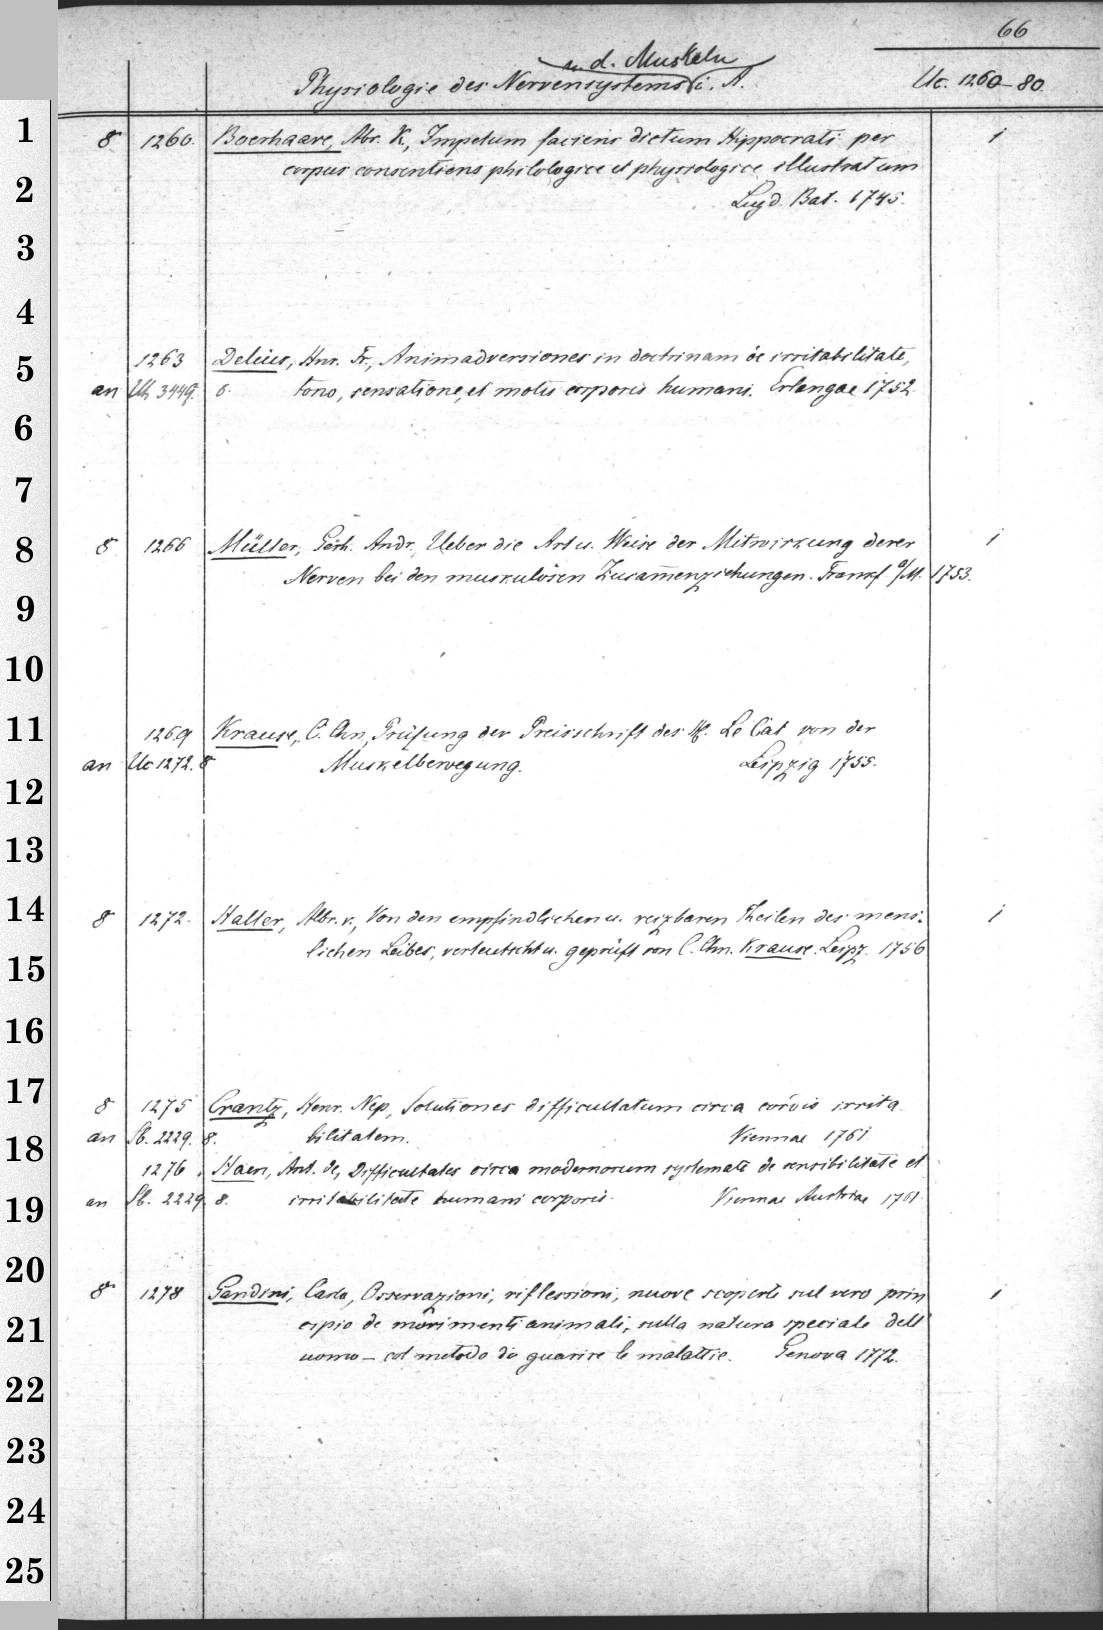 66
u. d. Muskeln
Physiologie des Nervensystems i. A. Uc. 1260–80.
1 8 1260. Boerhaave, Abr. K., Impetum faciens dictum Hippocrati per i
corpus consentiens philologice et physiologice illustratum
2 Lugd. Bat. 1745.
3
4
5 1263 Delius, Hnr. Fr., Animadversiones in doctrinam de irritabilitate,
an Ub 3449. 8. tono, sensatione, et motu corporis humani. Erlangae 1752.
6
7
8 8 1266 Müller, Gerh. Andr., Ueber die Art u. Weise der Mitwirkung derer i
Nerven bei den muskulösen Zusam̅enziehungen. Frankf. a/M. 1753.
9
10
11 1269 Krause, C. Chn., Prüfung der Preisschrift des H. Le Cat von der
an Uc 1272. 8 Muskelbewegung. Leipzig 1755.
12
13
14 8 1272. Haller, Albr. v., Von den empfindlichen u. reizbaren Theilen des mens.
lichen Leibes, verteutscht u. geprüft von C. Chn. Krause. Leipz. 1756
15
16
17 8 1275 Crantz, Henr. Nep., Solutiones difficultatum circa cordis irrita
18 an Sb. 2229. 8. bilitatem. Viennae 1761
1276. Haen, Ant. de, Difficultates circa modernorum systemate de sensibilitate et
19 an Sb. 2229. 8. irritabilitate humani corporis. Viennae Austriae 1761.
20 8 1278 Gandini, Carlo, Osservazioni, riflessioni, nuove scoperte sul vero prin i
21 cipio de movimenti animali, sulla natura speciale dell
uomo – col metodo di guarire le malattie. Genova 1772.
22
23
24
25